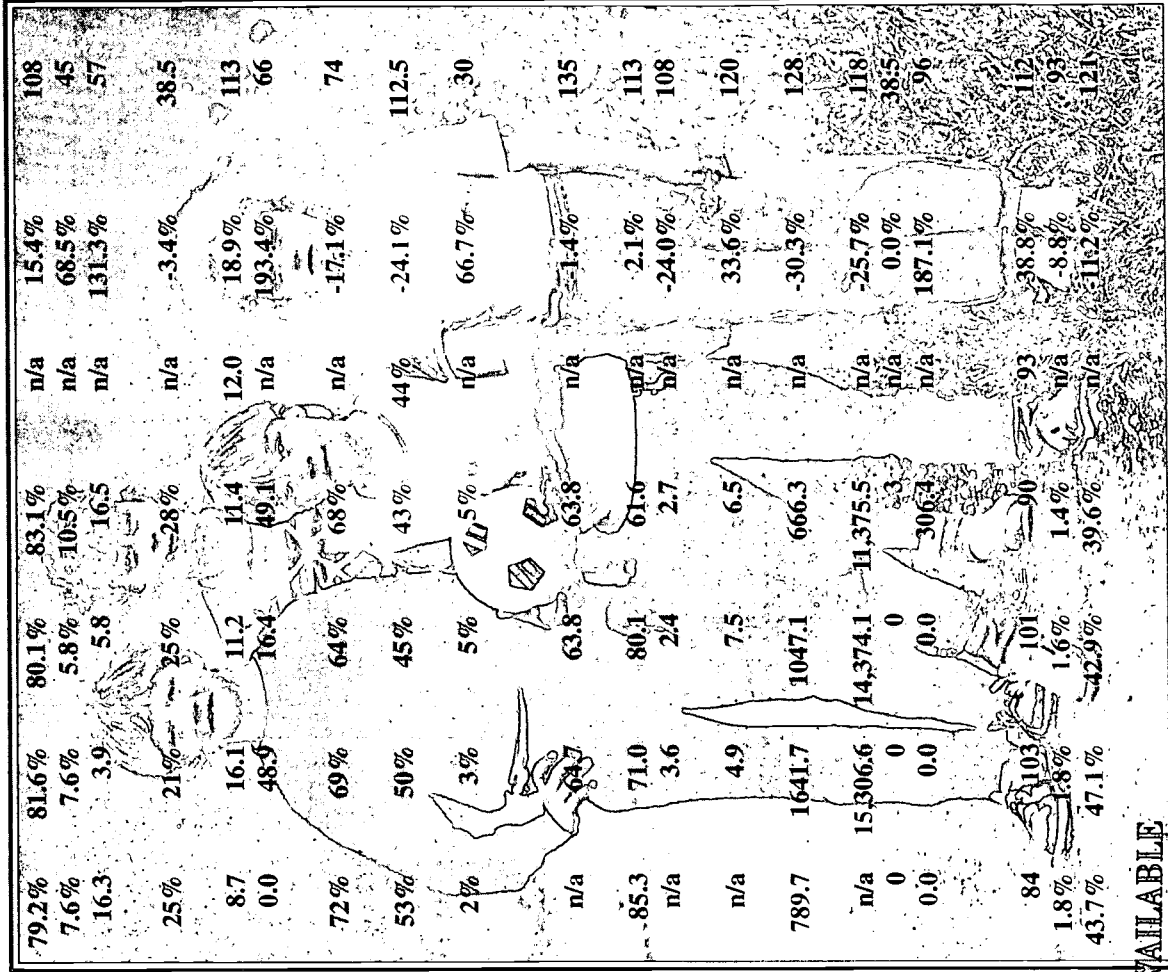 79.2% 81.6% 80.1% 83.1% n/a 15.4% 108
7.6% 7.6% 5.8% 10.5% n/a 68.5% 45
16.3 3.9 5.8 16.5 n/a 131.3% 57
25% 21% 25% 28% n/a -3.4% 38.5
8.7 16.1 11.2 11.4 12.0 18.9% 113
0.0 48.9 16.4 49.1 n/a 193.4% 66
72% 69% 64% 68% n/a -17.1% 74
53% 50% 45% 43% 44% -24.1% 112.5
2% 3% 5% 5% n/a 66.7% 30
n/a 64.7 63.8 63.8 n/a -1.4% 135
85.3 71.0 80.1 61.6 n/a -2.1% 113
n/a 3.6 2.4 2.7 n/a -24.0% 108
n/a 4.9 7.5 6.5 n/a 33.6% 120
789.7 1641.7 1047.1 666.3 n/a -30.3% 128
n/a 15,306.6 14,374.1 11,375.5 n/a -25.7% 118
0 0 0 3 n/a 0.0% 38.5
0.0 0.0 0.0 306.4 n/a 187.1% 96
84 103 101 90 93 38.8% 112
1.8% 1.8% 1.6% 1.4% n/a -8.8% 93
43.7% 47.1% 42.9% 39.6% n/a -11.2% 121
VAILABLE